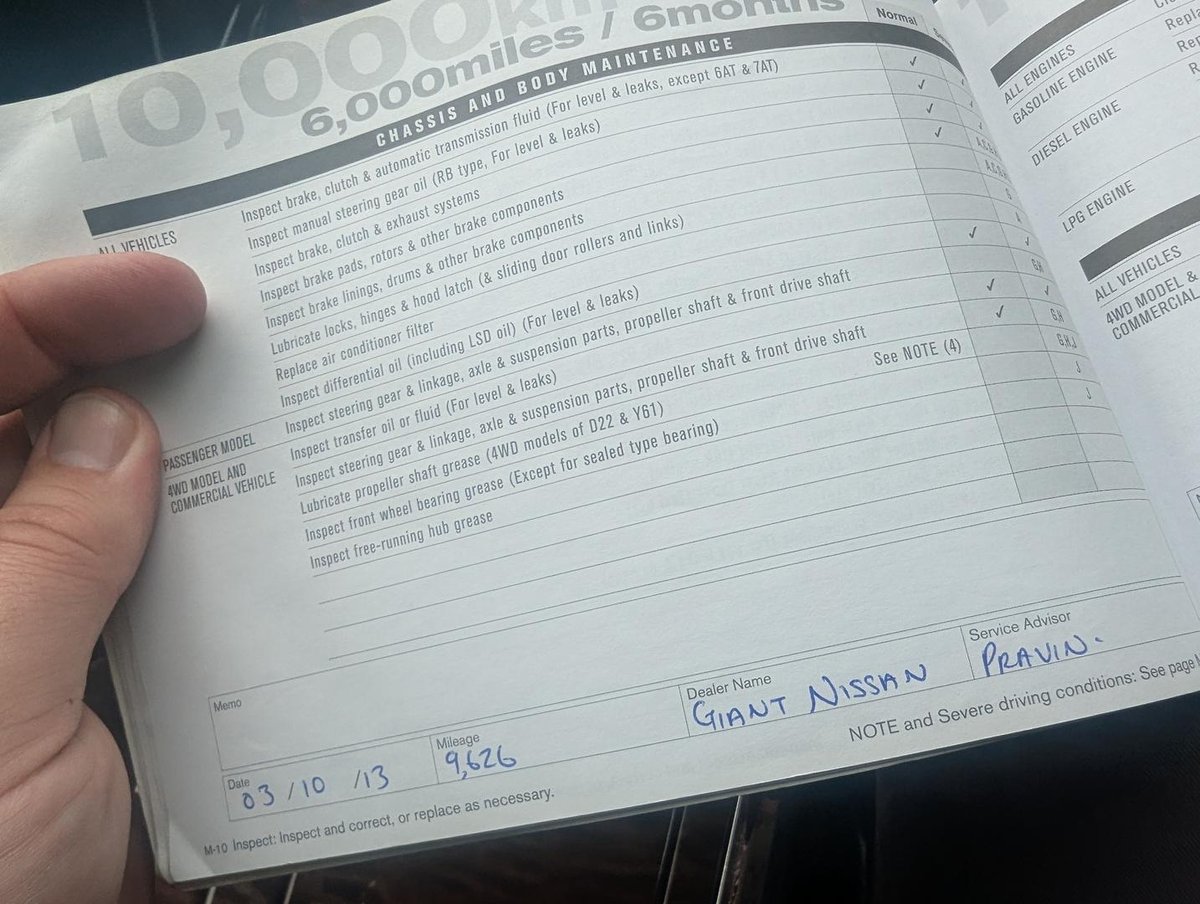 10,000km
6,000miles / 6months
CHASSIS AND BODY MAINTENANCE
Normal
ALL VEHICLES
Inspect brake, clutch & automatic transmission fluid (For level & leaks, except 6AT & 7AT) ✓
Inspect manual steering gear oil (RB type, For level & leaks) ✓
Inspect brake, clutch & exhaust systems ✓
Inspect brake pads, rotors & other brake components ✓
Inspect brake linings, drums & other brake components
Lubricate locks, hinges & hood latch (& sliding door rollers and links)
Replace air conditioner filter
Inspect differential oil (including LSD oil) (For level & leaks) ✓
PASSENGER MODEL
Inspect steering gear & linkage, axle & suspension parts, propeller shaft & front drive shaft G.H
4WD MODEL AND
COMMERCIAL VEHICLE
Inspect transfer oil or fluid (For level & leaks) ✓ ✓
Inspect steering gear & linkage, axle & suspension parts, propeller shaft & front drive shaft ✓ G.H
Lubricate propeller shaft grease (4WD models of D22 & Y61) See NOTE (4) G.H.J
Inspect front wheel bearing grease (Except for sealed type bearing) J
Inspect free-running hub grease J
Memo
Date
03 / 10 / 13
Mileage
9,626
Dealer Name
GIANT NISSAN
Service Advisor
PRAVIN.
NOTE and Severe driving conditions: See page
M-10 Inspect: Inspect and correct, or replace as necessary.
ALL ENGINES
GASOLINE ENGINE
DIESEL ENGINE
LPG ENGINE
ALL VEHICLES
4WD MODEL &
COMMERCIAL